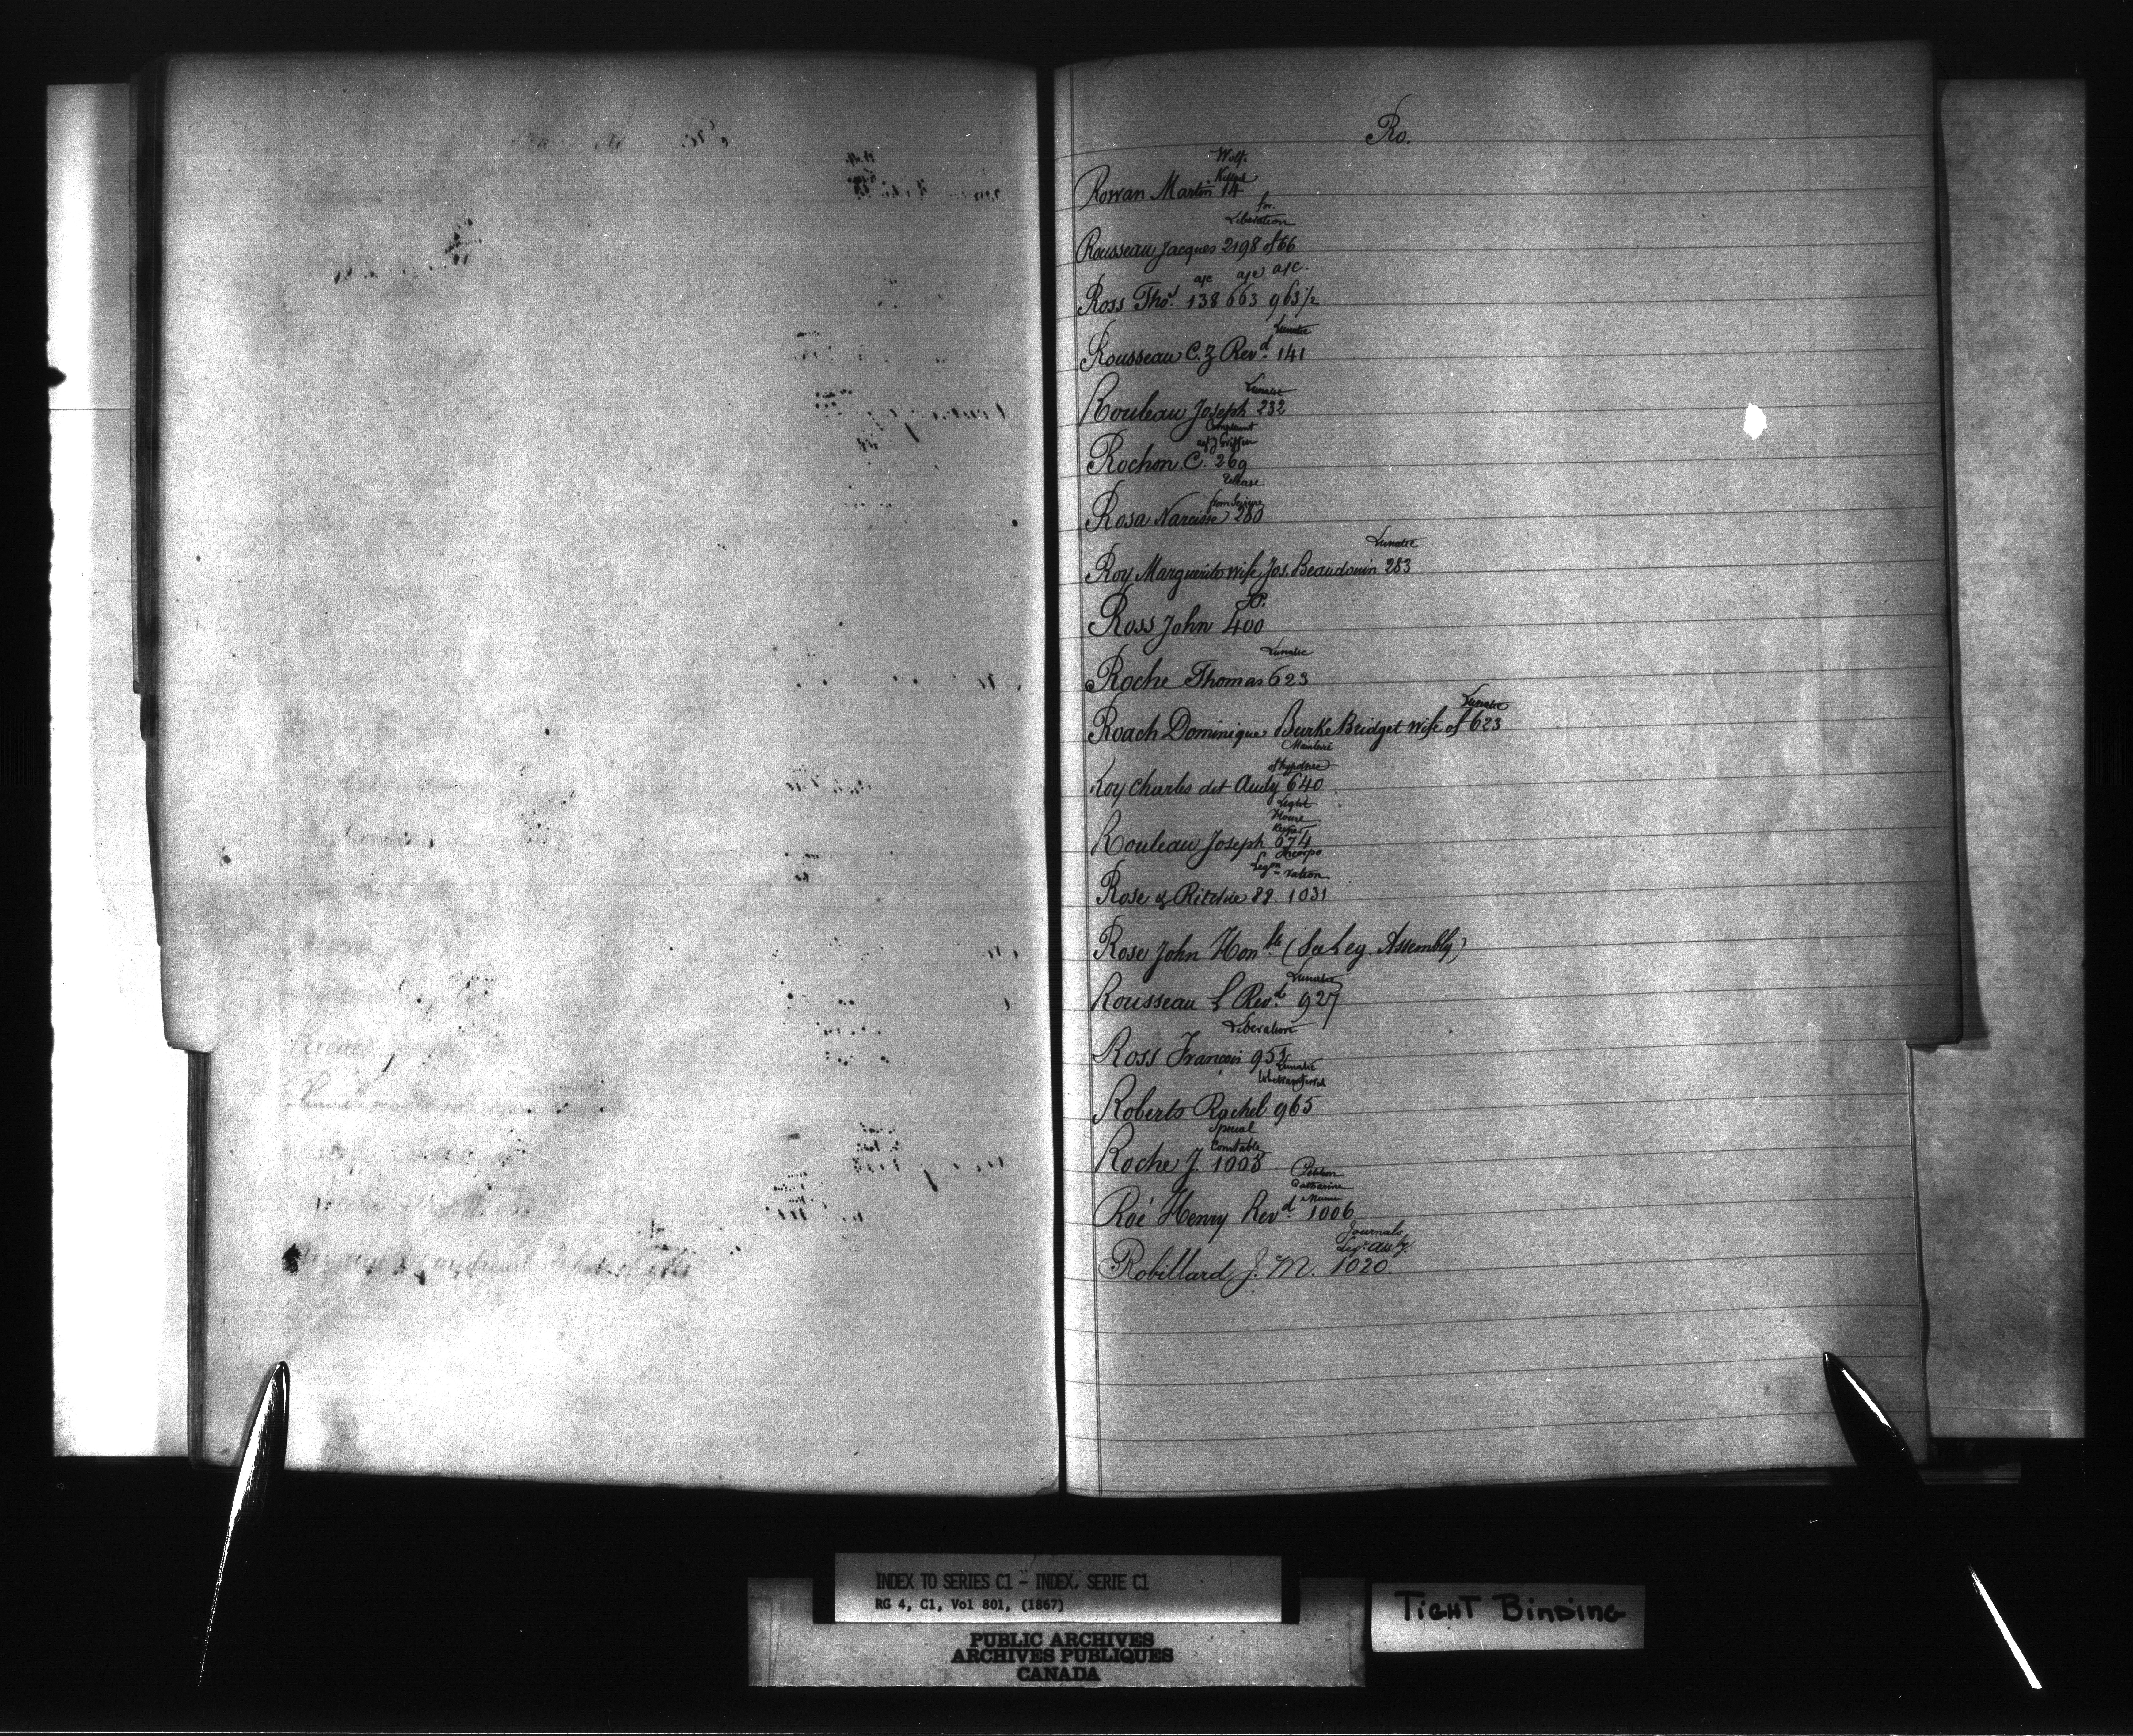 Ro.
Wolf
Killed
Rowan Martin 14
for
Liberation
Rousseau Jacques 2198 of 66
a/c a/c a/c.
Ross Thos. 138 663 963½
Lunatic
Rousseau C. Z Revd. 141
Lunatic
Rouleau Joseph 232
Complaint
agt J Griffin
Rochon C. 269
Release
from Seizure
Rosa Narcisse 280
Lunatic
Roy Marguerite wife Jos. Beaudouin 283
JP.
Ross John 400
Lunatic
Roche Thomas 623
Lunatic
Roach Dominique Burke Bridget wife of 623
of hypothec
Roy Charles dit Audy 640
Light
House
Keeper
Rouleau Joseph 674
Incorpo
ration
Rose & Ritchie 88. 1031
Rose John Honble (See Leg. Assembly)
Lunatic
Rousseau L Revd. 927
Liberation
Ross François 951
Lunatic
Roberts Rachel 965
Special
Constable
Roche J. 1003
Petition
Catharine
Roé Henry Revd. 1006
Journals
Leg. Assly.
Robillard J. M. 1020
INDEX TO SERIES C1 - INDEX, SERIE C1
RG 4, C1, Vol 801, (1867)
TIGHT BINDING
PUBLIC ARCHIVES
ARCHIVES PUBLIQUES
CANADA